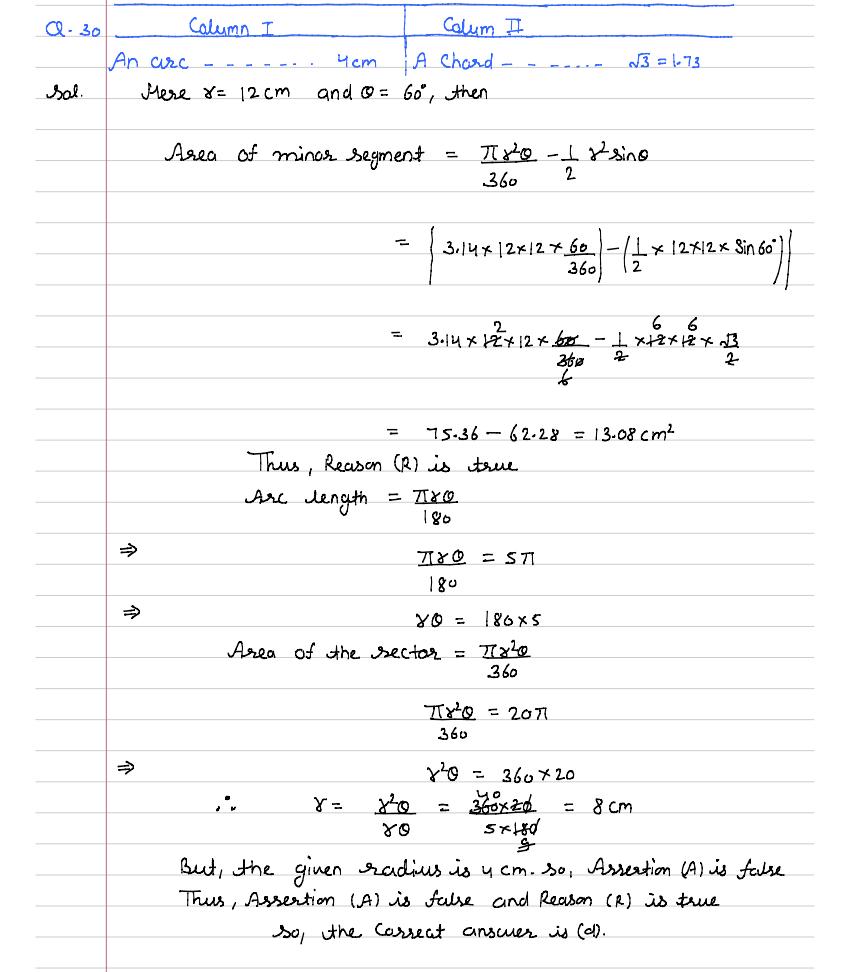 Q. 30 Column I Colum II
An arc - - - - - - - . 4 cm A Chord - - - ..... - √3 = 1.73
Sol. Here r = 12 cm and θ = 60°, then
Area of minor segment = πr²θ/360 - 1/2 r² sinθ
= [3.14 × 12 × 12 × 60/360] - (1/2 × 12 × 12 × Sin 60°)
= 3.14 × 12 2 × 12 × 60/360 6 - 1/2 × 12 6 × 12 6 × √3/2
= 75.36 - 62.28 = 13.08 cm²
Thus, Reason (R) is true
Arc length = πrθ/180
⇒ πrθ/180 = 5π
⇒ rθ = 180 × 5
Area of the sector = πr²θ/360
πr²θ/360 = 20π
⇒ r²θ = 360 × 20
∴ r = r²θ/rθ = 40 360 × 20/5 × 180 9 = 8 cm
But, the given radius is 4 cm. so, Assertion (A) is false
Thus, Assertion (A) is false and Reason (R) is true
so, the Correct answer is (d).